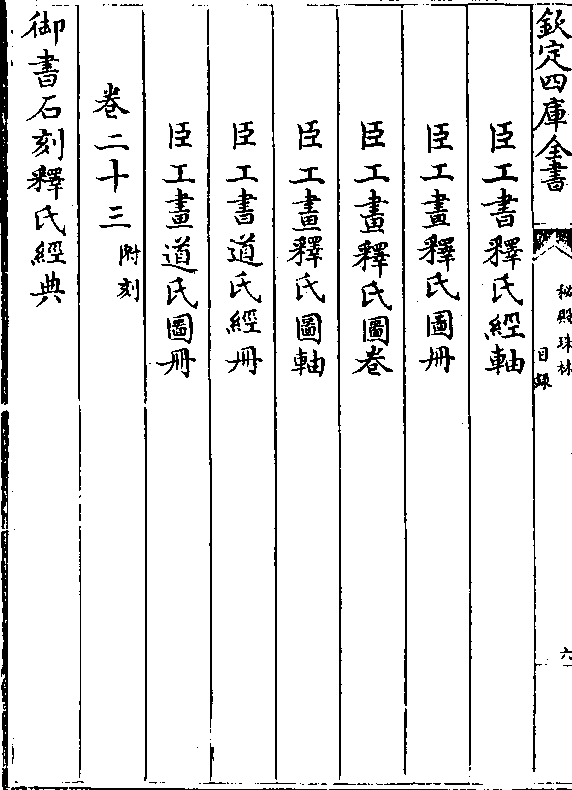 欽定四庫全書
秘殿珠林
目録
六
臣工書釋氏經軸
臣工畫釋氏圖冊
臣工畫釋氏圖卷
臣工畫釋氏圖軸
臣工書道氏經冊
臣工畫道氏圖冊
卷二十三附刻
御書石刻釋氏經典